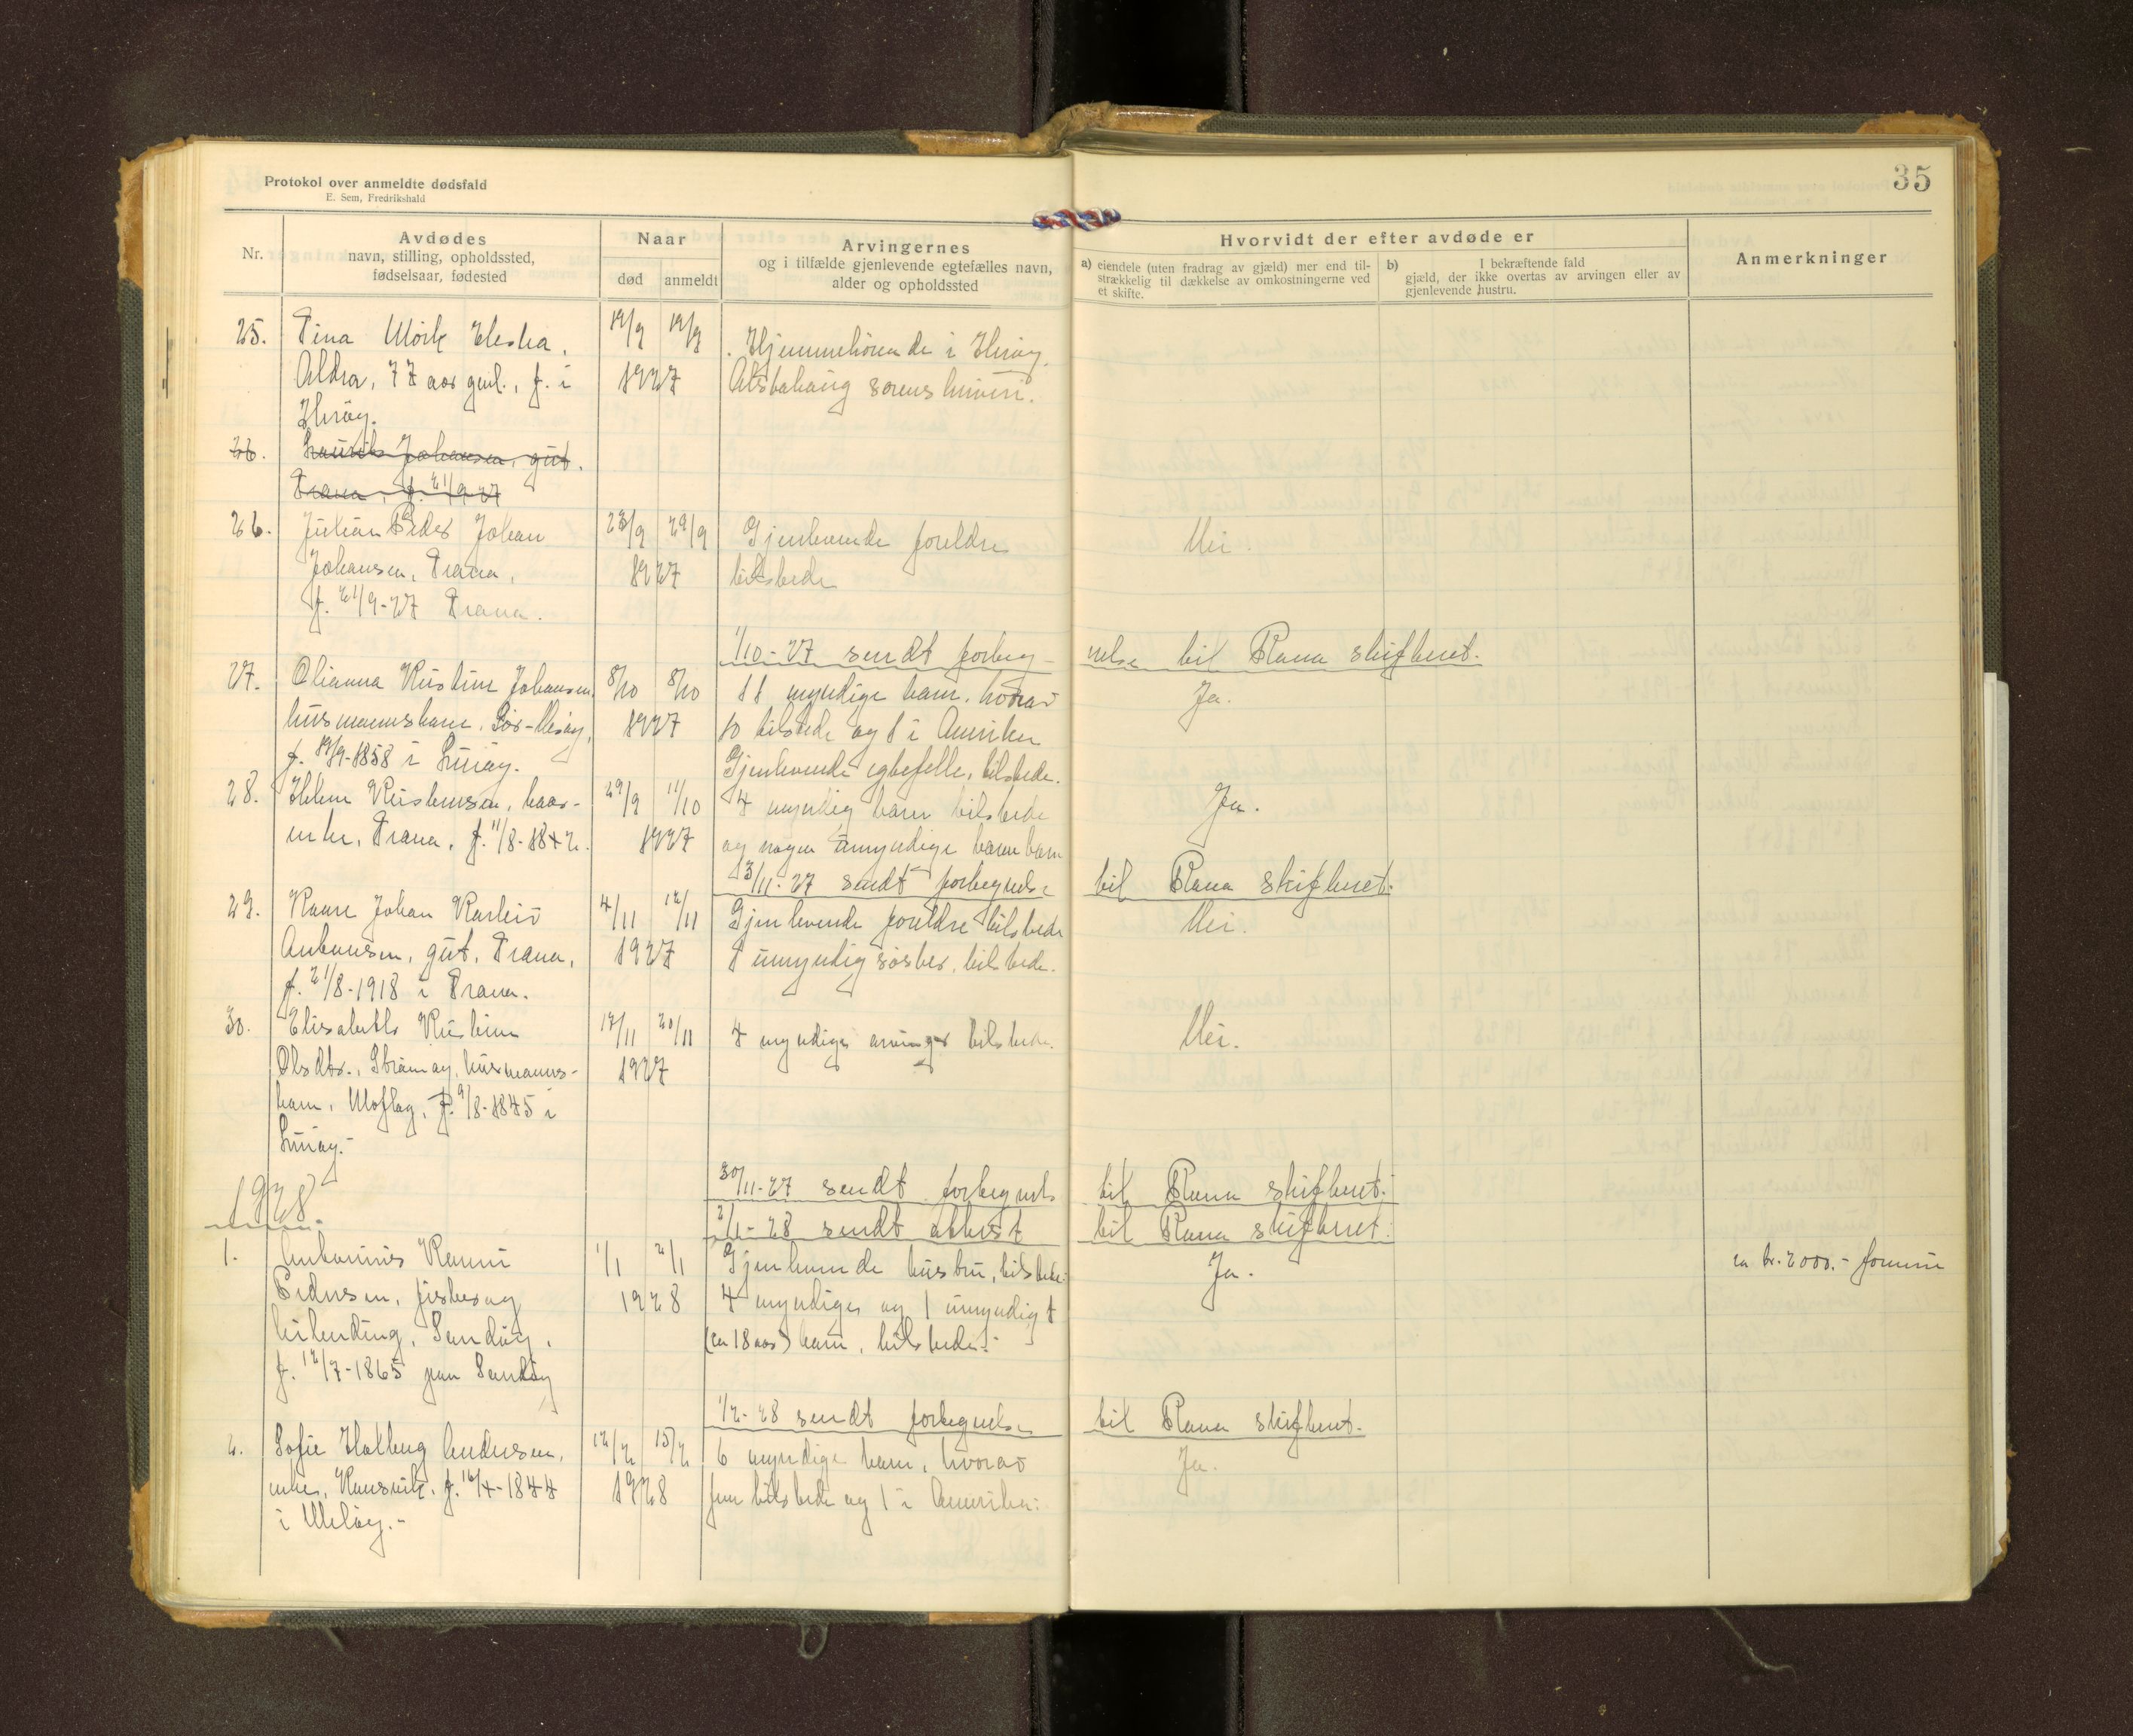 Protokol over anmeldte dødsfald
E. Sem, Fredrikshald
35
Nr.
Avdødes
navn, stilling, opholdssted,
fødselsaar, fødested
Naar
død
anmeldt
Arvingernes
og i tilfælde gjenlevende egtefælles navn,
alder og opholdssted
Hvorvidt der efter avdøde er
a) eiendele (uten fradrag av gjæld) mer end til-
strækkelig til dækkelse av omkostningerne ved
et skifte.
b) I bekræftende fald
gjæld, der ikke overtas av arvingen eller av
gjenlevende hustru.
Anmerkninger
25. Tina Mörk
Aldra, 77 aar gml., f. i
Heröy.
19/9 19/9
1927
Hjemmehörende i Heröy.
Alstahaug sorenskriveri.
26. Johansen, gut.
Træna, f. 21/9 27
26. Julian Peder Johan
Johansen, Træna,
f. 21/9-27 Træna.
23/9 29/9
1927
Gjenlevende foreldre
tilstede
Nei.
1/10-27 sendt forteg-
nelse til Rana skifteret.
27. Olianna Kristine Johansen
husmannskone, Sör-Nesöy,
f. 19/9-1858 i Luröy.
8/10 8/10
1927
11 myndige barn, hvorav
10 tilstede og 1 i Amerika
Gjenlevende egtefelle, tilstede.
Ja.
28. Kristensen, kaar-
enke, Træna, f. 11/8-1842.
29/9 11/10
1927
4 myndig barn tilstede
og nogen umyndige barnebarn
Ja.
13/11-27 sendt fortegnelse
til Rana skifteret.
29. Kaare Johan
Antonsen, gut, Træna,
f. 21/8-1918 i Træna.
4/11 12/11
1927
Gjenlevende foreldre tilstede
1 umyndig söster, tilstede.
Nei.
30. Elisabeth Kristine
Olsdtr., husmanns-
kone, f. 9/8-1845 i
Luröy.-
17/11 20/11
1927
4 myndige arvinger tilstede.
Nei.
30/11-27 sendt fortegnelse
til Rana skifteret.
1928.
2/1-28 sendt attest
til Rana skifteret.
1. Antonius
Pedersen, fisker og
Sandöy,
f. 12/7-1865 paa Sandöy
1/1 2/1
1928
Gjenlevende hustru, tilstede.
4 myndige og 1 umyndigt
(ca 18 aar) barn, tilstede.-
Ja.
ca kr. 2000.- formue
1/2-28 sendt fortegnelse
til Rana skifteret.
2. Sofie Andersen,
enke, f. 16/4-1844
i Melöy.-
12/2 15/2
1928
6 myndige barn, hvorav
fem tilstede og 1 i Amerika.
Ja.